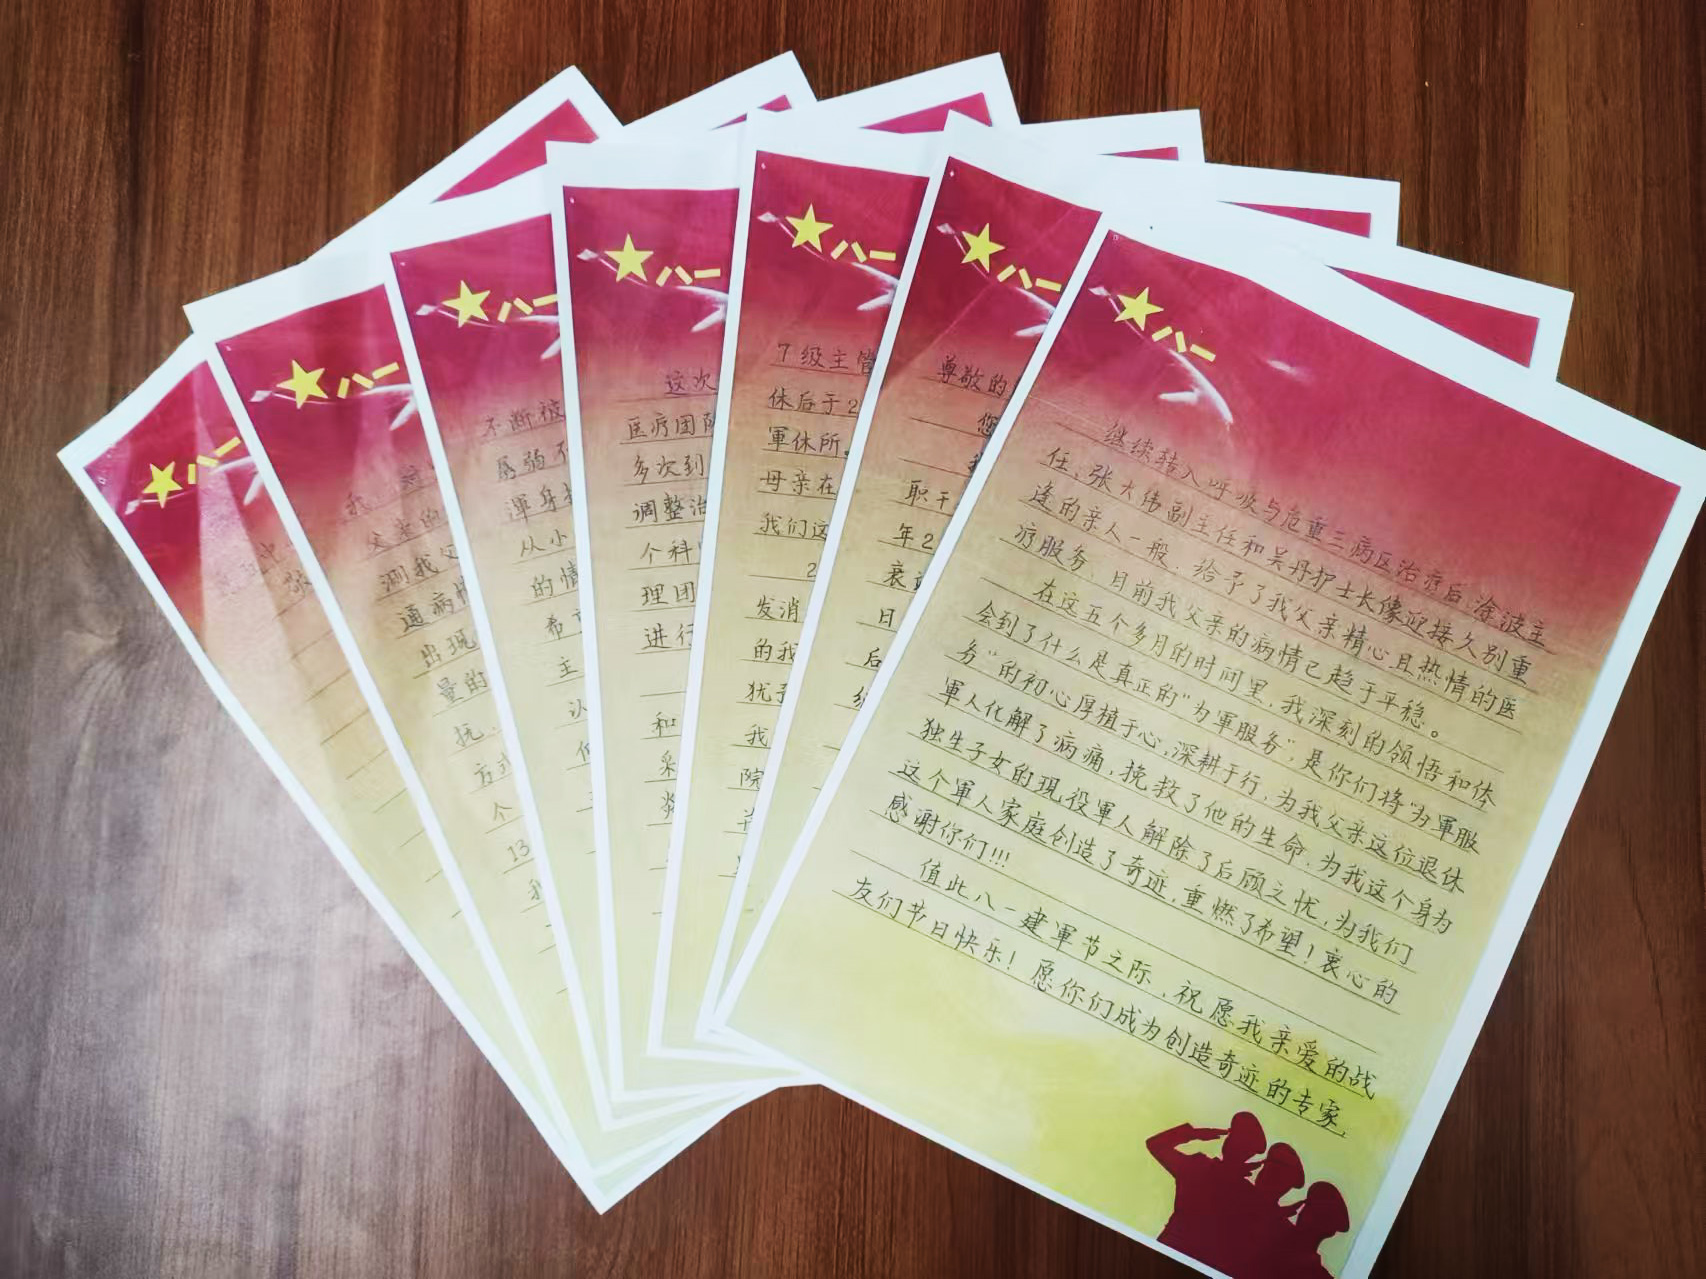 八一
继续转入呼吸与危重三病区治疗后，涂波主
任、张大伟副主任和吴丹护士长像迎接久别重
逢的亲人一般，给予了我父亲精心且热情的医
疗服务，目前我父亲的病情已趋于平稳。
在这五个多月的时间里，我深刻的领悟和体
会到了什么是真正的“为軍服务”，是你们将“为軍服
务”的初心厚植于心，深耕于行，为我父亲这位退休
軍人化解了病痛，挽救了他的生命，为我这个身为
独生子女的现役軍人解除了后顾之忧，为我们
这个軍人家庭创造了奇迹，重燃了希望！衷心的
感谢你们!!!
值此八一建軍节之际，祝愿我亲爱的战
友们节日快乐！愿你们成为创造奇迹的专家，
八一
尊敬的
您
职干
年2
日
后
八一
7级主管
休后于2
軍休所。
母亲在
我们这
2
发消
的我
犹
我
院
八一
这次
医疗团队
多次到
调整治
个科
理团
进行
和
采
八一
不断被
孱弱不
浑身
从小
的情
希
主
认
八一
我
父亲的
测我父
通病情
出现
量的
抚
方式
个
13
我
八一